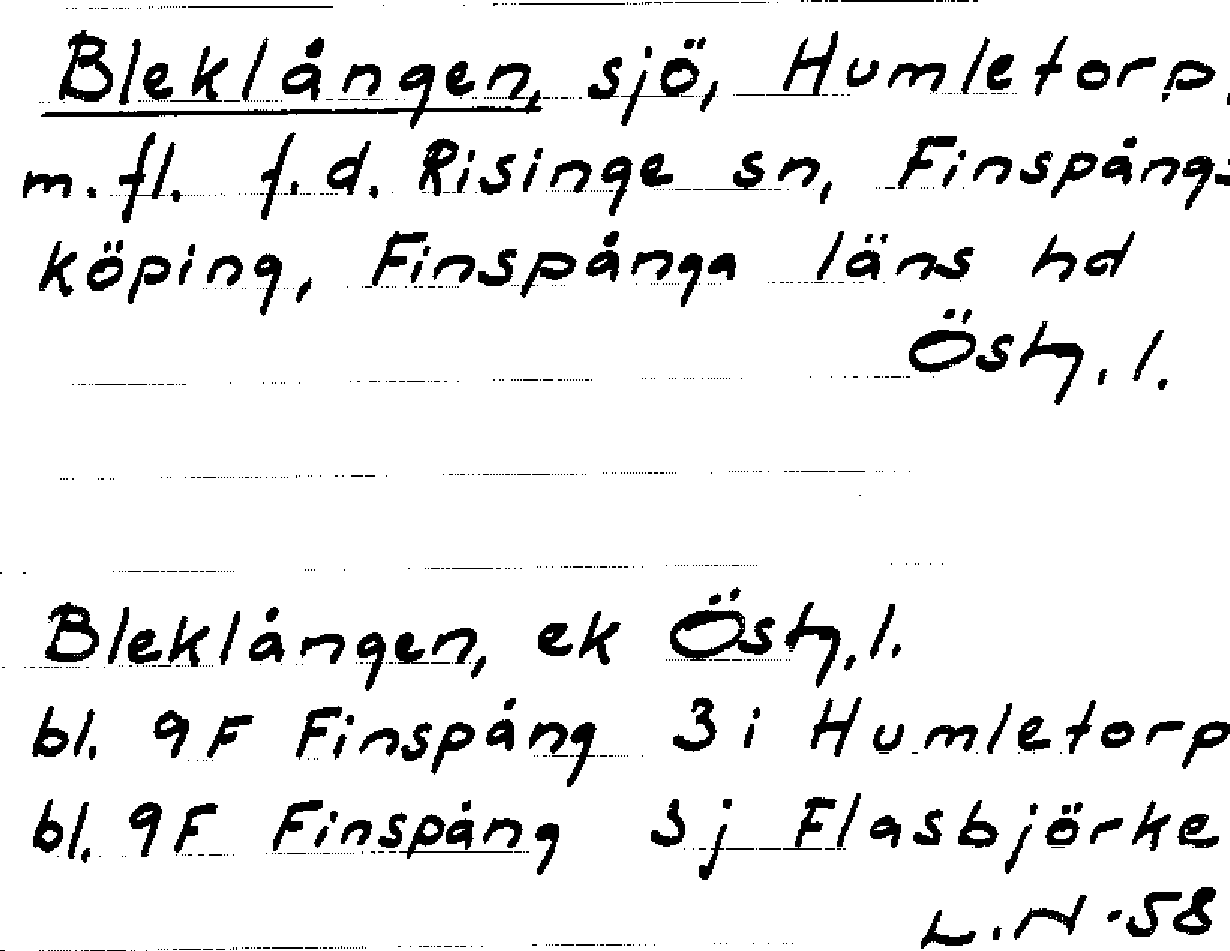 Bleklången, sjö, Humletorp,
m.fl. f.d. Risinge sn, Finspångs
köping, Finspånga läns hd
Östg.l.
Bleklången, ek Östg.l.
bl. 9F Finspång 3i Humletorp
bl. 9F Finspång 3j Flasbjörke
L.N-58